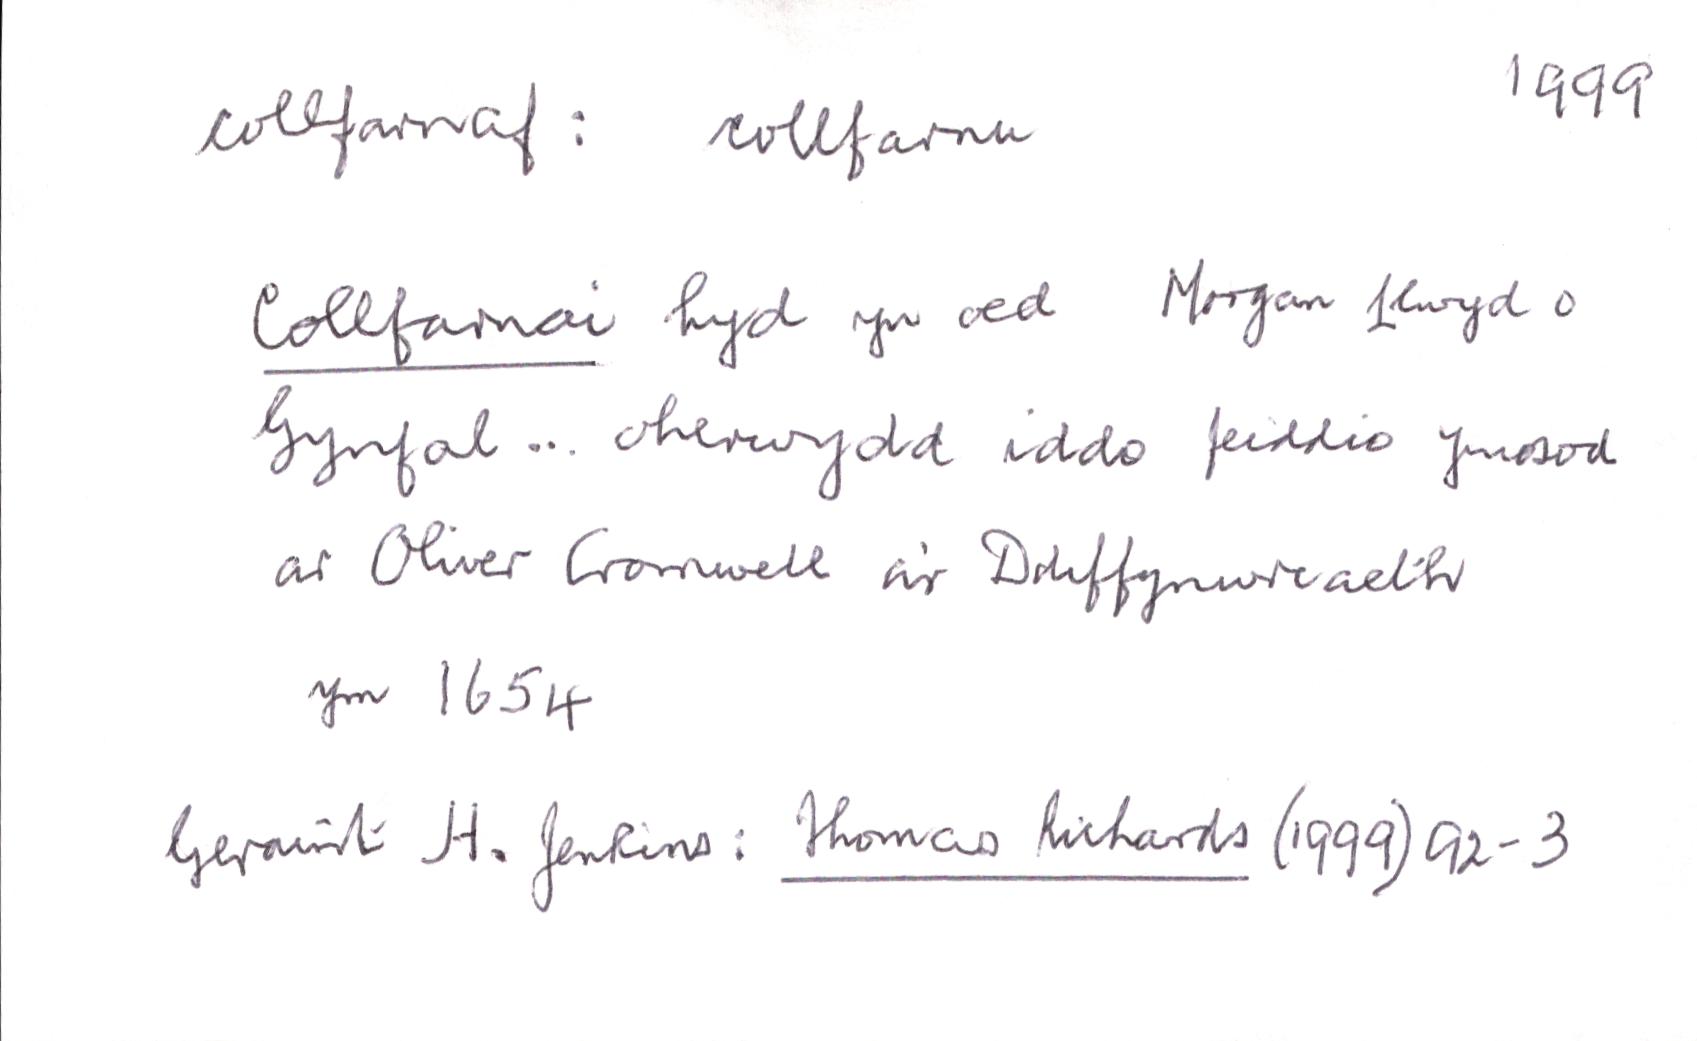 1999
collfarnaf: collfarnu
Collfarnai hyd yn oed Morgan Llwyd o
Gynfal ... oherwydd iddo feiddio ymosod
ar Oliver Cromwell a'r Ddiffynwriaeth
ym 1654
Geraint H. Jenkins: Thomas Richards (1999) 92-3